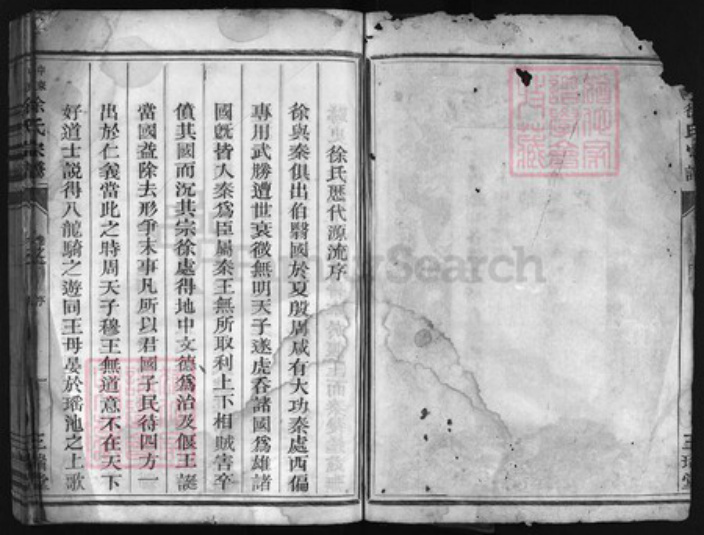 徐氏歷代源流序
徐與秦俱出伯翳國於夏殷周咸有大功秦處西偏
專用武勝遭世衰微無明天子遂虎吞諸國為雄諸
國旣皆入秦為臣屬秦王無所取利上下相賊害卒
僨其國而沉其宗徐處得地中文德為治及偃王誕
當國益除去形爭末事凡所以君國子民待四方一
出於仁義當此之時周天子穆王無道意不在天下
好道士說得八龍騎之遊同王母宴於瑤池之上歌
徐氏宗譜
序
三瑞堂
徐氏宗譜
三瑞堂
Search